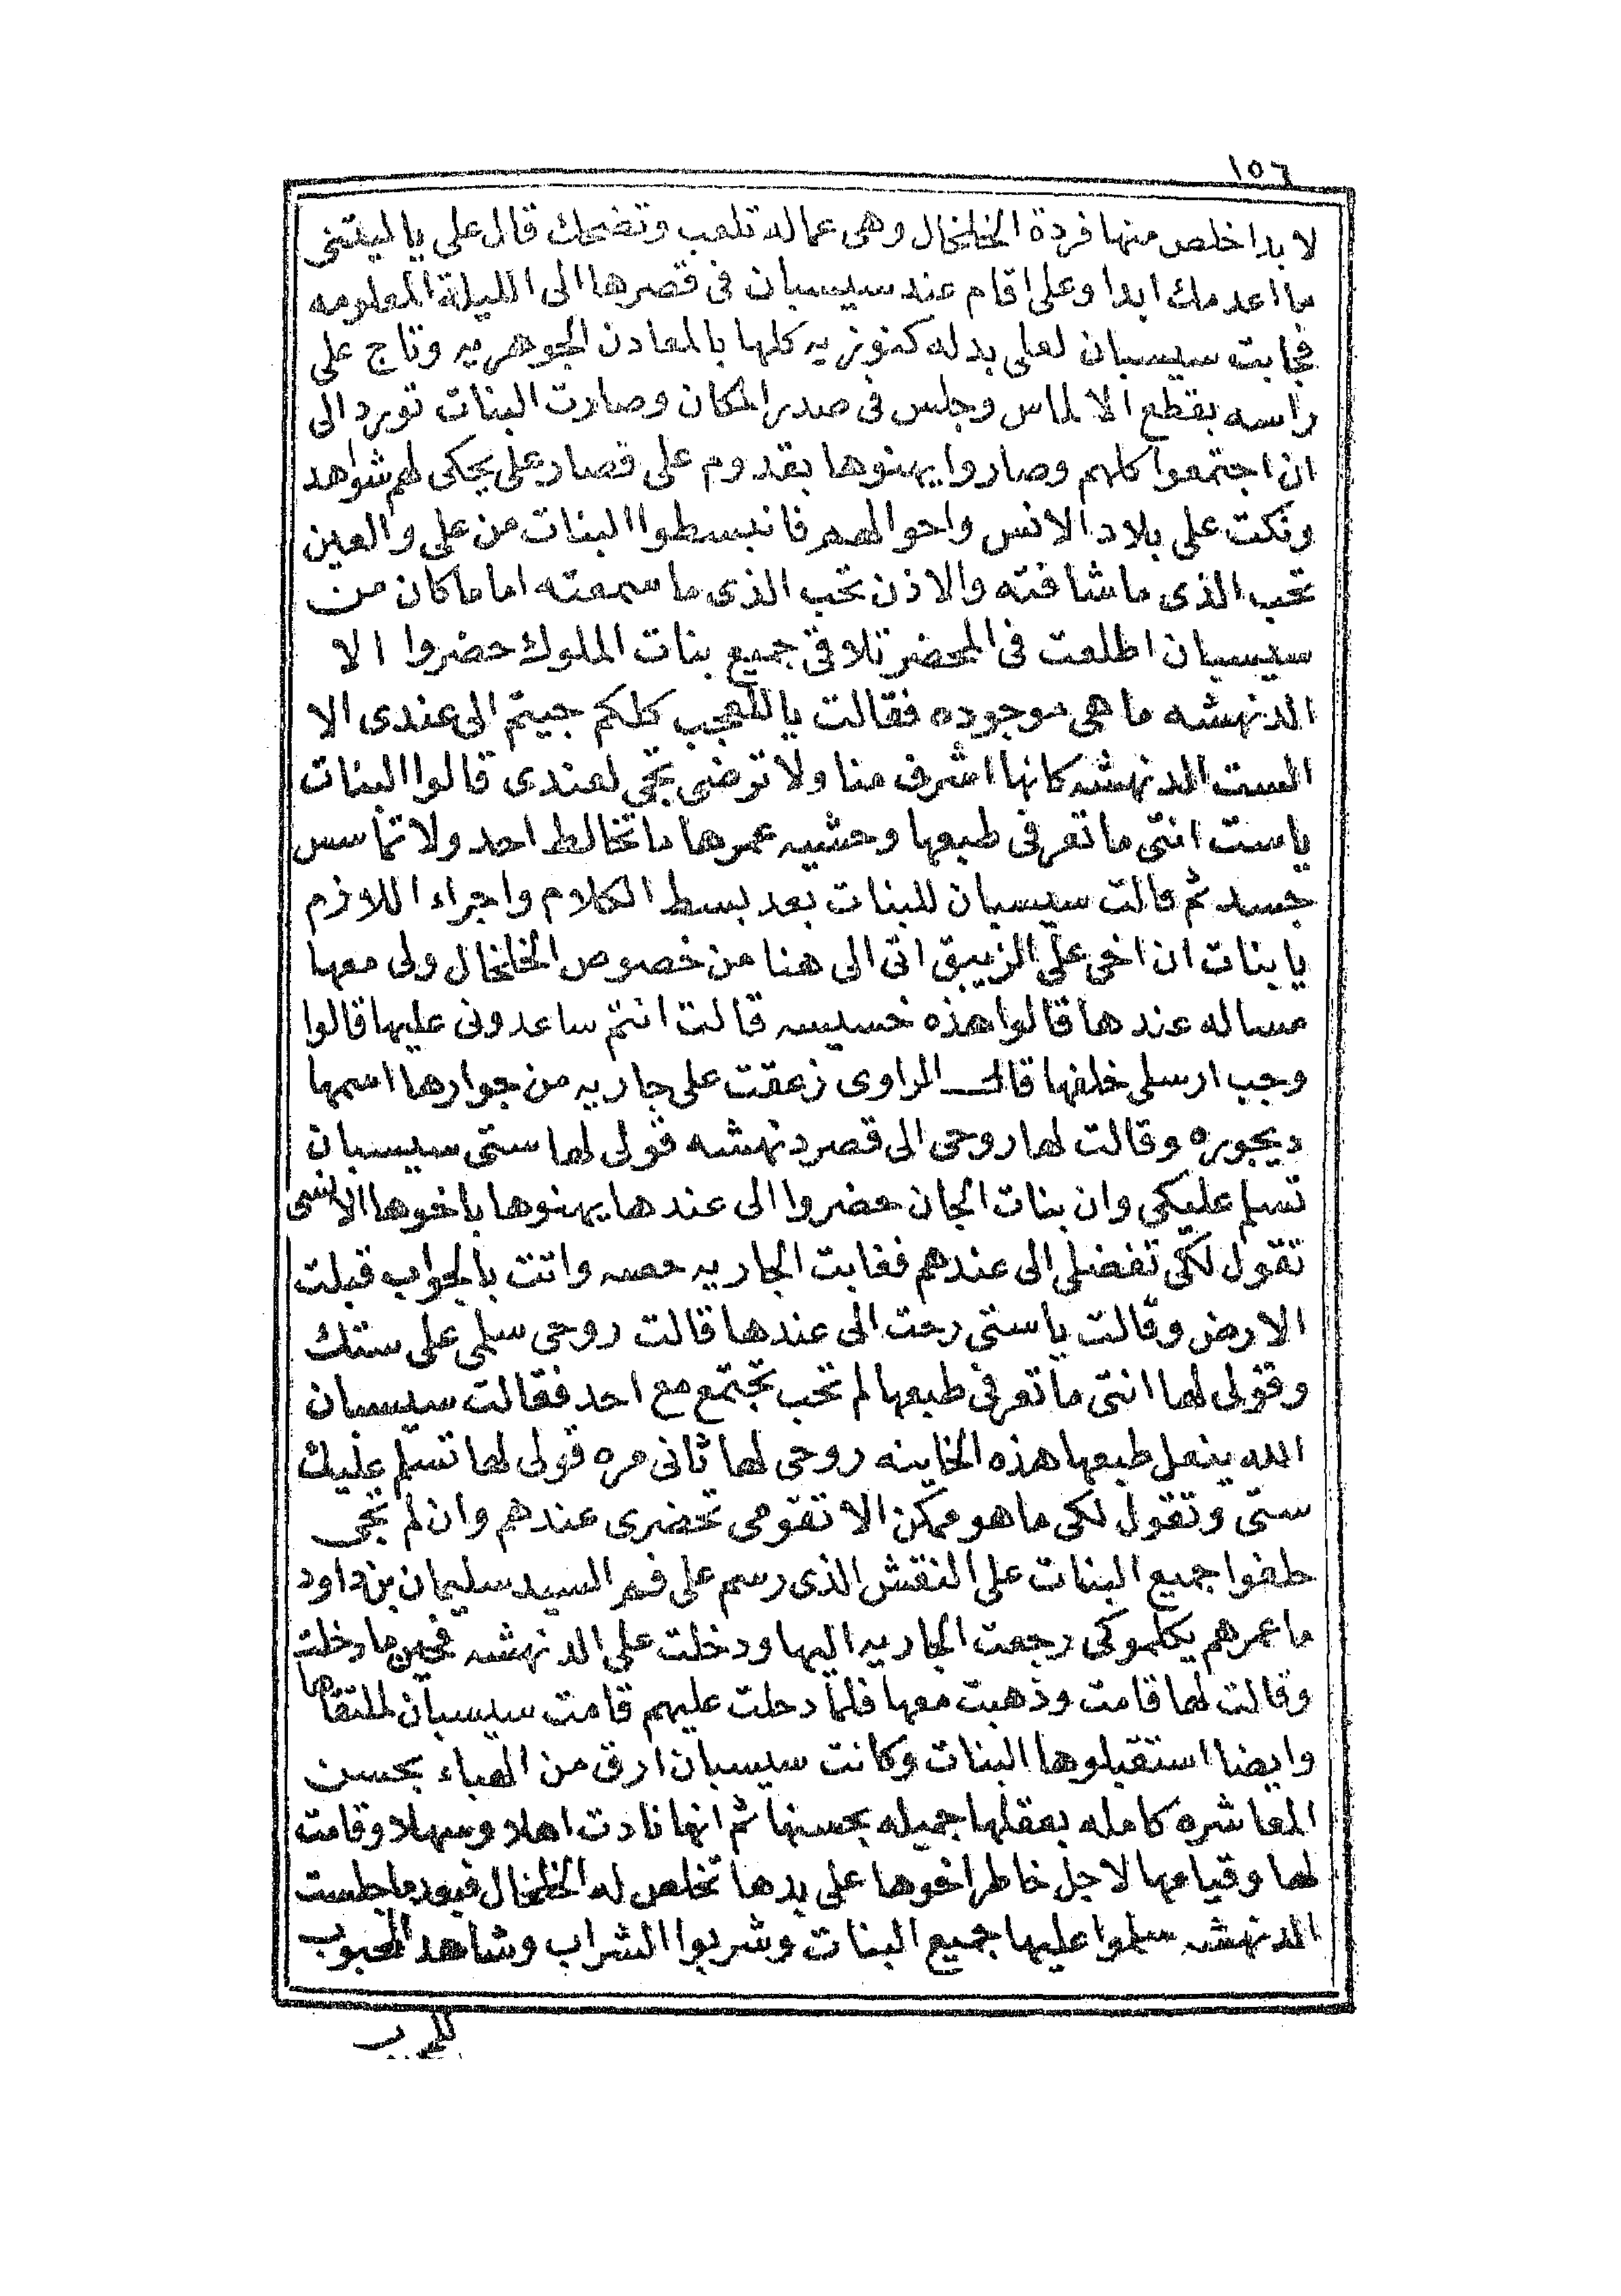 ١٥٦
لا بد اخلص منها فردة الخلخال وهى عماله تلعب وتضحك قال على يا ليتنى
ما اعدمك ابدا وعلى اقام عند سيسبان فى قصرها الى الليلة المعلومه
فجابت سيسبان لعلى بدله كنوزيه كلها بالمعادن الجوهريه وتاج على
راسه بقطع الالماس وجلس فى صدر المكان وصارت البنات تورد الى
ان اجتمعوا كلهم وصاروا يهنوها بقدوم على فصار على يحكى لهم شواهد
ونكت على بلاد الانس واحوالهم فانبسطوا البنات من على والعين
تحب الذى ما شافته والاذن تحب الذى ما سمعته اما ما كان من
سيسبان اطلعت فى المحضر تلاقى جميع بنات الملوك حضروا الا
الدنهشه ما هى موجوده فقالت يا للعجب كلكم جيتم الى عندى الا
الست الدنهشه كانها اشرف منا ولا ترضى تجى لعندى قالوا البنات
يا ست انتى ما تعرفى طبعها وحشيه عمرها ما تخالط احد ولا تماسس
جسد ثم قالت سيسبان للبنات بعد بسط الكلام واجراء اللازم
يا بنات ان اخى على الزيبق اتى الى هنا من خصوص الخلخال ولى معها
مساله عندها قالوا هذه خسيسه قالت انتم ساعدونى عليها قالوا
وجب ارسلى خلفها قال الراوى زعقت على جاريه من جوارها اسمها
ديجوره وقالت لها روحى الى قصر دنهشه قولى لها ستى سيسبان
تسلم عليكى وان بنات الجان حضروا الى عندها يهنوها باخوها الانسى
تقول لكى تفضلى الى عندهم فغابت الجاريه حصه واتت بالجواب قبلت
الارض وقالت يا ستى رحت الى عندها قالت روحى سلمى على ستك
وقولى لها انتى ما تعرفى طبعها لم تحب تجتمع مع احد فقالت سيسبان
الله ينعل طبعها هذه الخاينه روحى لها ثانى مره قولى لها تسلم عليك
ستى وتقول لكى ما هو ممكن الا تقومى تحضرى عندهم وان لم تجى
حلفوا جميع البنات على النقش الذى رسم على فم السيد سليمان بن داود
ما عمرهم يكلموكى رجعت الجاريه اليها ودخلت على الدنهشه فحين ما دخلت
وقالت لها قامت وذهبت معها فلما دخلت عليهم قامت سيسبان لملتقاها
وايضا استقبلوها البنات وكانت سيسبان ارق من الهباء بحسن
المعاشره كامله بعقلها جميله بحسنها ثم انها نادت اهلا وسهلا وقامت
لها وقيامها لاجل خاطر اخوها على بدها تخلص له الخلخال فبعد ما جلست
الدنهشه سلموا عليها جميع البنات وشربوا الشراب وشاهد المحبوب